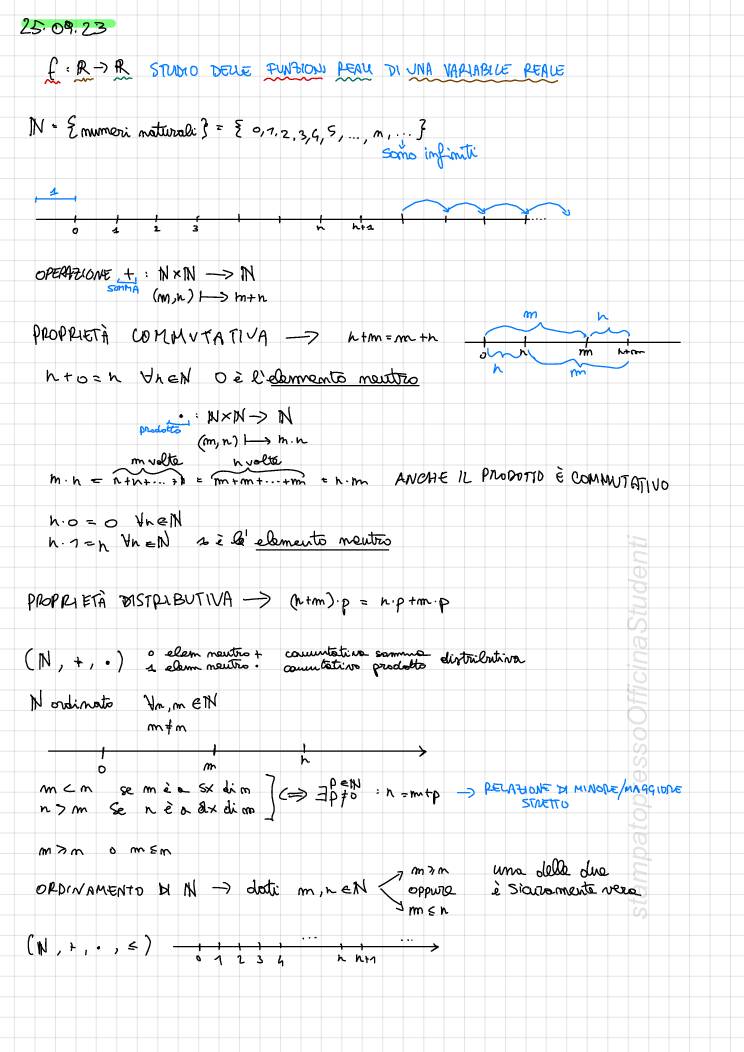 25.09.23
f : ℝ → ℝ STUDIO DELLE FUNZIONI REALI DI UNA VARIABILE REALE
ℕ = {numeri naturali} = { 0,1,2,3,4,5, ..., n, ... }
sono infiniti
1
0 1 2 3 n n+1
OPERAZIONE + : ℕ×ℕ → ℕ
SOMMA
(m,n) ↦ m+n
PROPRIETÀ COMMUTATIVA → n+m = m+n
m n
0 n m n+m
n m
n+0=n ∀n∈ℕ 0 è l'elemento neutro
· : ℕ×ℕ → ℕ
prodotto
(m,n) ↦ m·n
m volte n volte
m·n = n+n+...+n = m+m+...+m = n·m ANCHE IL PRODOTTO È COMMUTATIVO
n·0 = 0 ∀n∈ℕ
n·1=n ∀n∈ℕ 1 è l' elemento neutro
PROPRIETÀ DISTRIBUTIVA → (n+m)·p = n·p+m·p
(ℕ, +, ·) 0 elem neutro + commutativa somma distributiva
1 elem neutro · commutativo prodotto
ℕ ordinato ∀n,m ∈ℕ
m≠n
0 m n
m < n se m è a sx di n
n > m se n è a dx di m
⟺ ∃ p∈ℕ p≠0 : n = m+p → RELAZIONE DI MINORE/MAGGIORE STRETTO
m ⩾ n o m ≤ n
ORDINAMENTO DI ℕ → dati m,n ∈ℕ m⩾n oppure m ≤ n una delle due è sicuramente vera
(ℕ, +, ·, ≤) 0 1 2 3 4 ... n n+1 ...
stampatopressoOfficinaStudenti